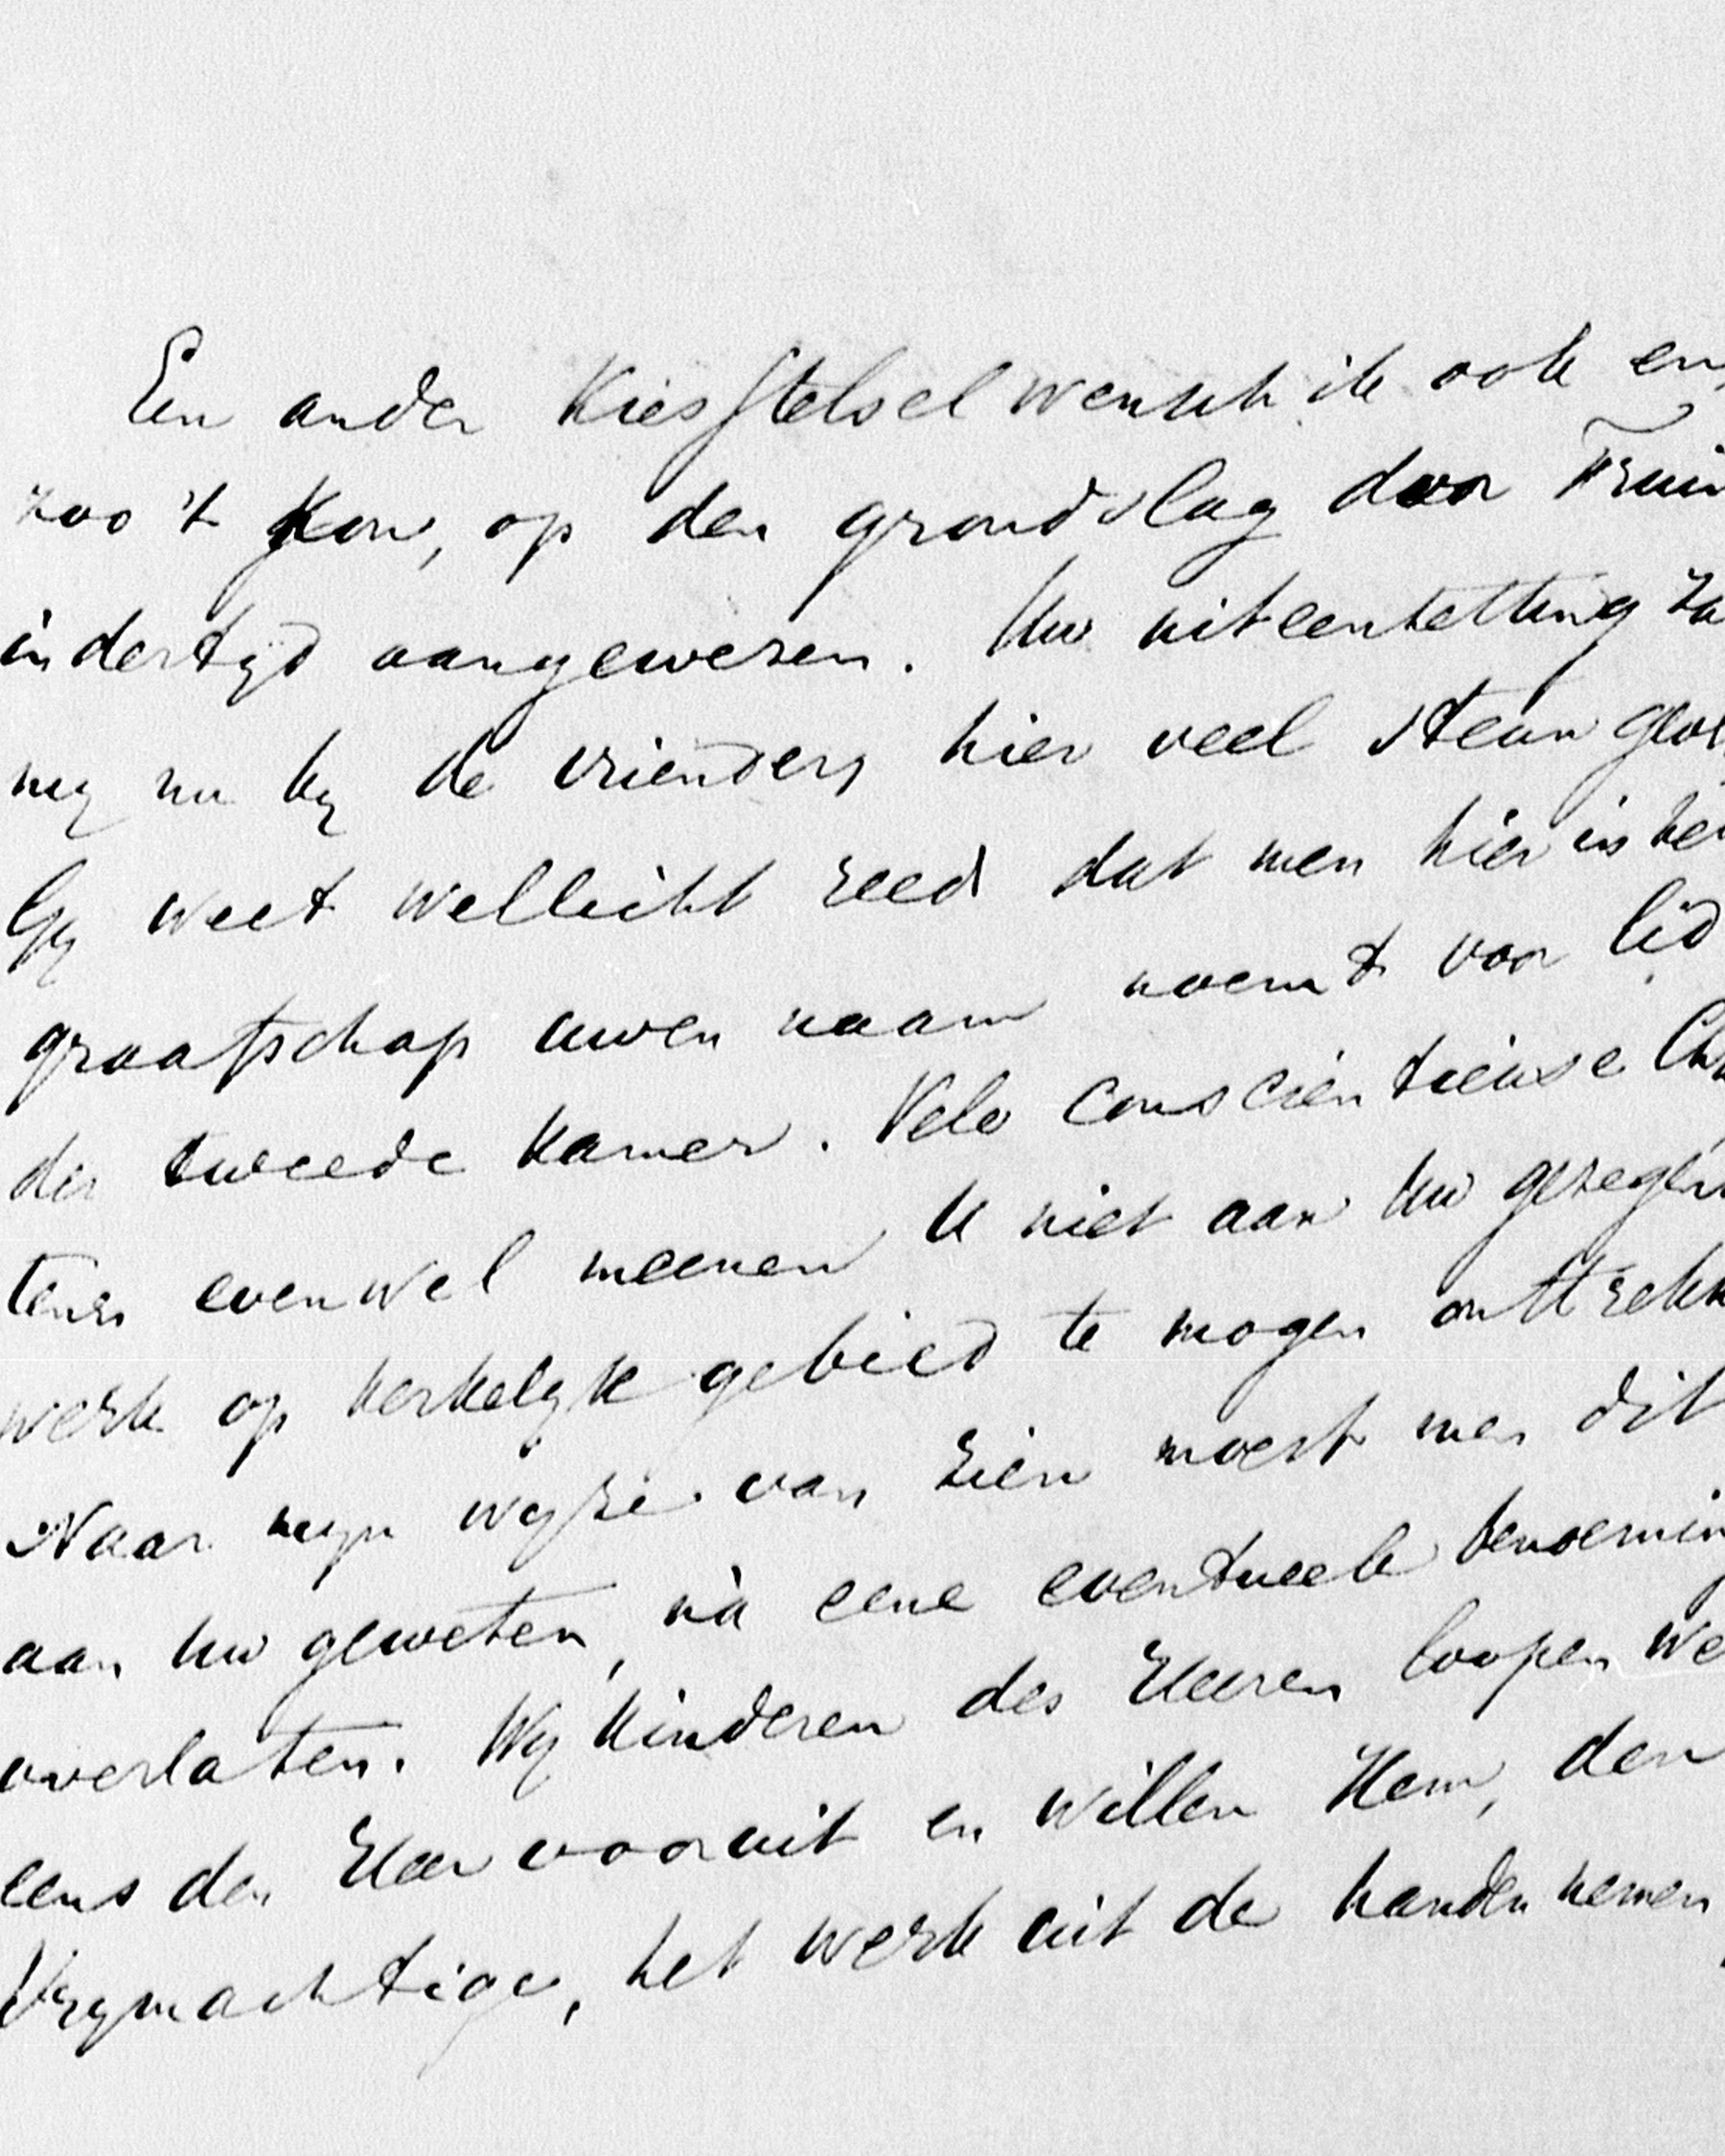 Een ander Kiesstelsel wensch ik ook en,
zoo 't kon, op den grondslag door Fruin
indertyd aangewezen. Uw uiteenzetting za
my nu by de vrienden hier veel steun geve
Gy weet wellicht reeds dat men hier in het
graafschap uwen naam noemt voor lid
der tweede Kamer. Vele conscientieuse Chr
tenen evenwel meenen U niet aan Uw gezegen
werk op kerkelyk gebied te mogen onttrekk
Naar myn wyze van zien moest men dit
aan Uw geweten, nà eene eventueele benoemin
overlaten. Wy kinderen des Heeren loopen we
eens den Heer vooruit en willen Hem, den
Vrymachtige, het werk uit de handen nemen